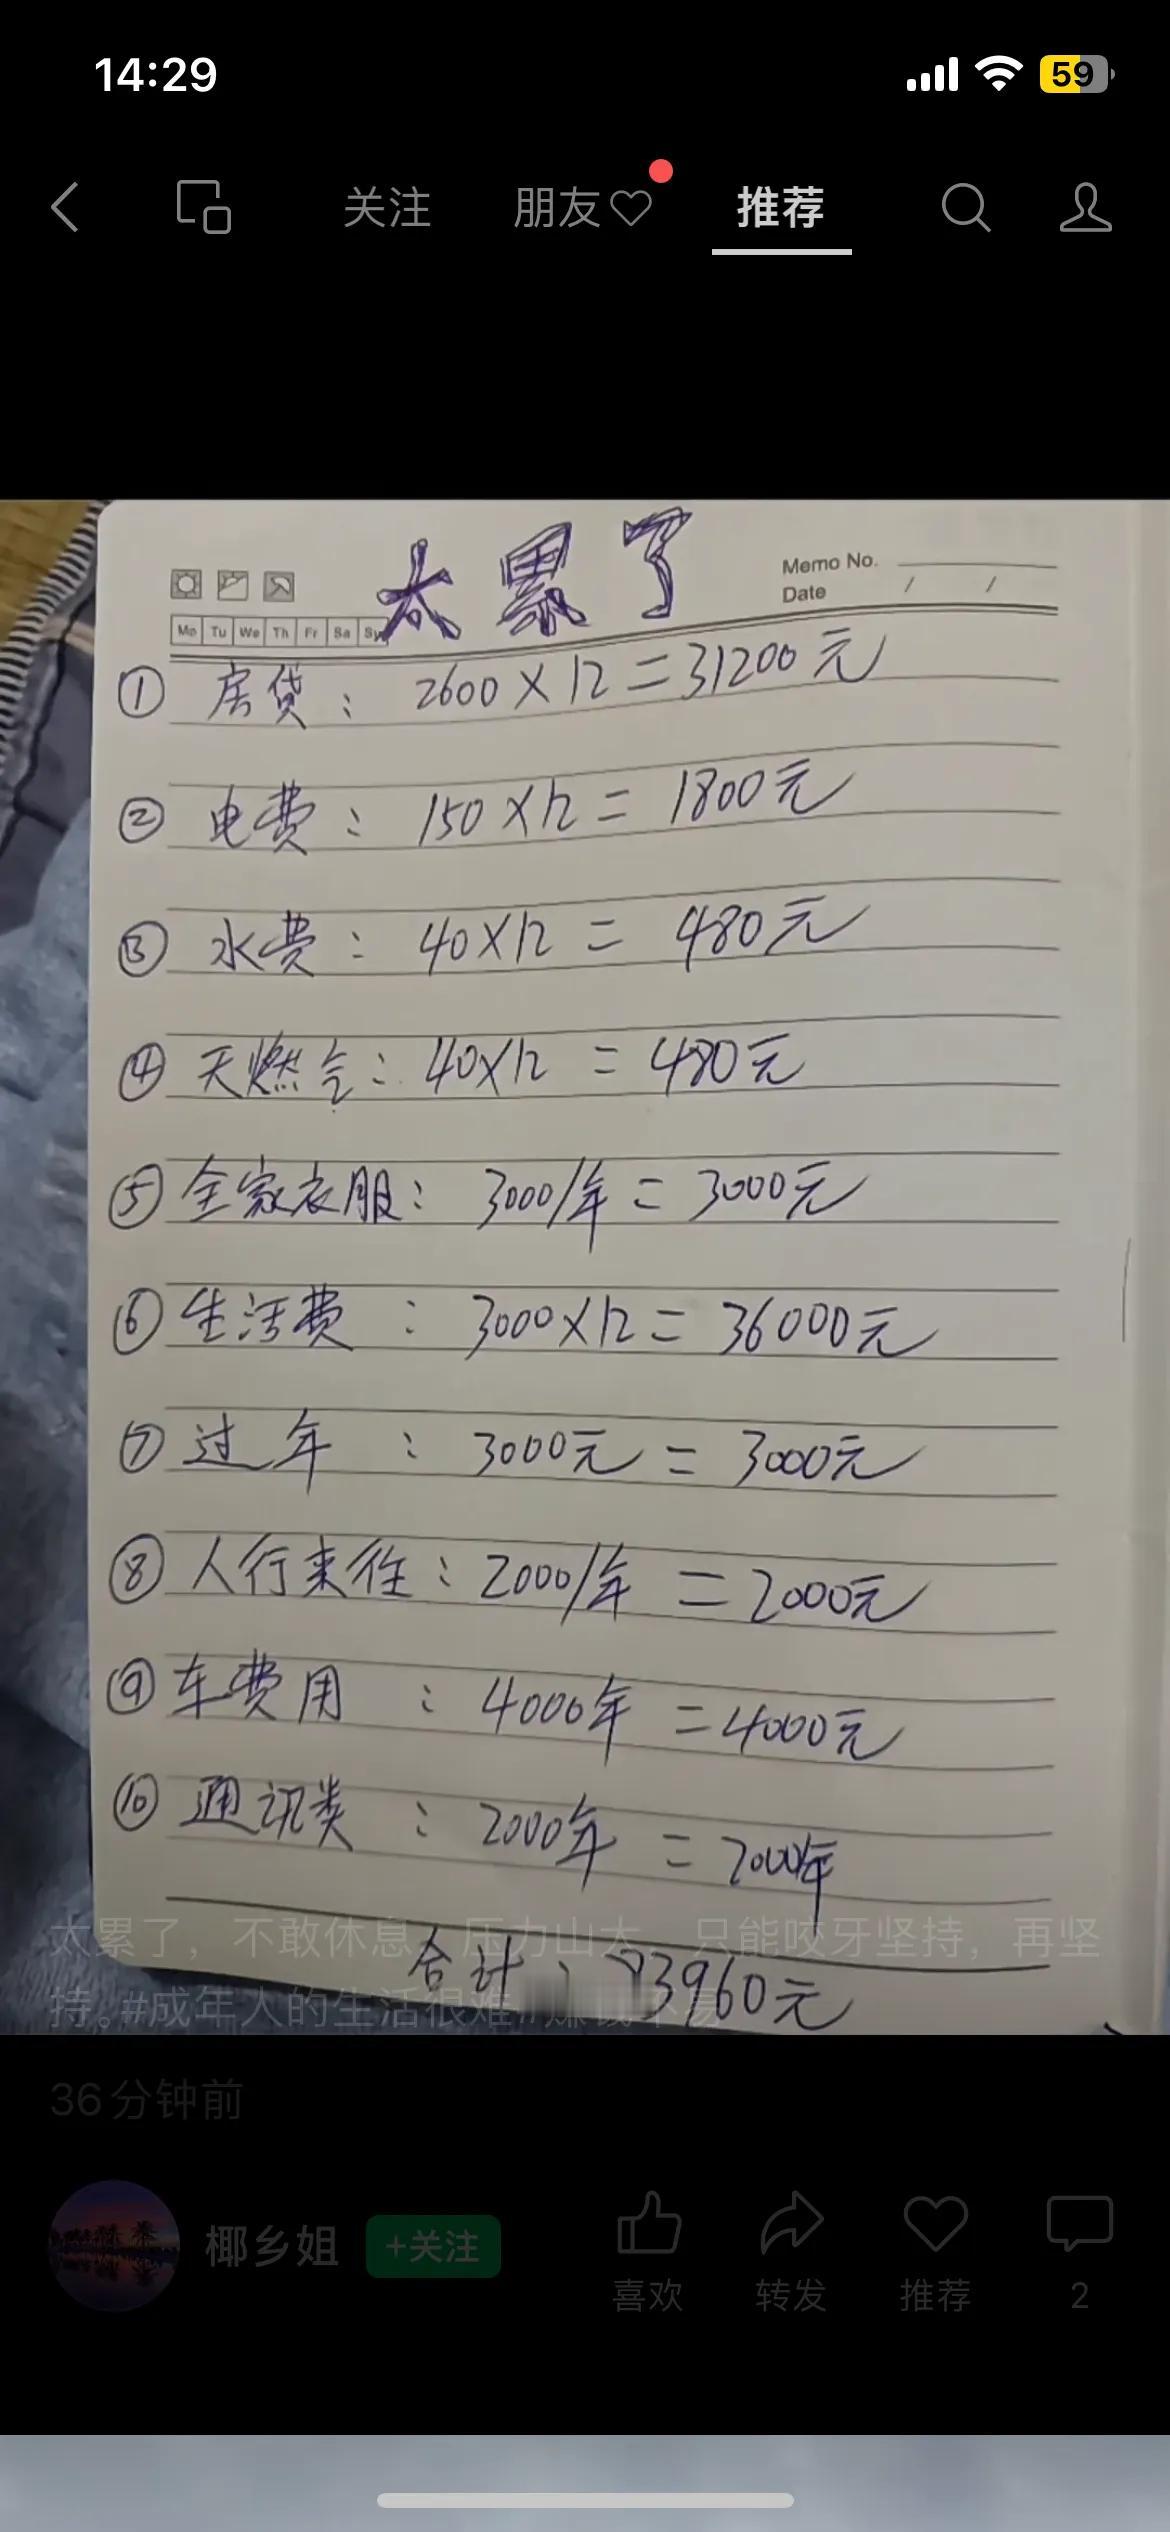 14:29
59
关注 朋友 推荐
太累了
Memo No.
Date / /
Mo Tu We Th Fr Sa Su
① 房贷：2600×12=31200元
② 电费：150×12=1800元
③ 水费：40×12=480元
④ 天燃气：40×12=480元
⑤ 全家衣服：3000/年=3000元
⑥ 生活费：3000×12=36000元
⑦ 过年：3000元=3000元
⑧ 人行来往：2000/年=2000元
⑨ 车费用：4000年=4000元
⑩ 通讯类：2000年=2000年
合计：83960元
太累了，不敢休息，压力山大，只能咬牙坚持，再坚
持。#成年人的生活很难 #赚钱不易
36分钟前
椰乡姐 +关注
喜欢 转发 推荐 2